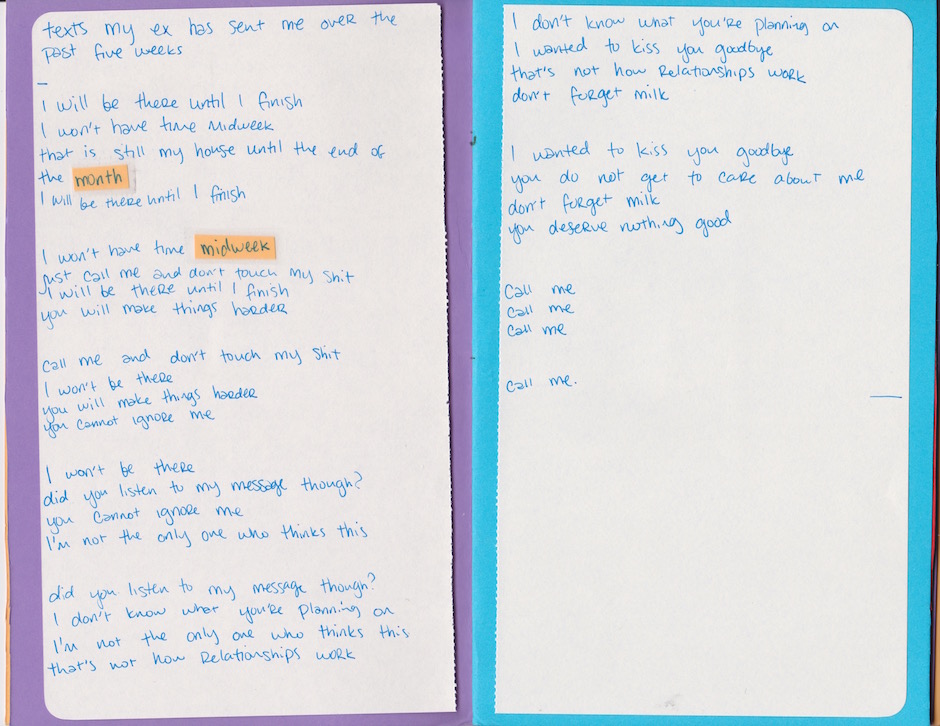 texts my ex has sent me over the
past five weeks
—
I will be there until I finish
I won't have time midweek
that is still my house until the end of
the month
I will be there until I finish
I won't have time midweek
just call me and don't touch my shit
I will be there until I finish
you will make things harder
call me and don't touch my shit
I won't be there
you will make things harder
you cannot ignore me
I won't be there
did you listen to my message though?
you cannot ignore me
I'm not the only one who thinks this
did you listen to my message though?
I don't know what you're planning on
I'm not the only one who thinks this
that's not how relationships work
I don't know what you're planning on
I wanted to kiss you goodbye
that's not how relationships work
don't forget milk
I wanted to kiss you goodbye
you do not get to care about me
don't forget milk
you deserve nothing good
call me
call me
call me
call me.